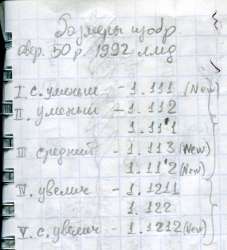 Размеры изобр
авр. 50 р. 1992 ллмд
I с. уменьш - 1.111 (New)
II. уменьш - 1.112
1.11'1
III средний - 1.113 (New)
1.11'2 (New)
IV. увелич - 1.1211
1.122
V. с. увелич - 1.1212 (New)